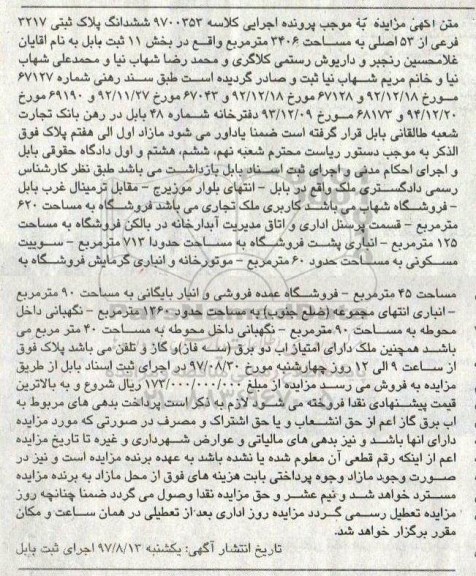 متن آگهی مزایده به موجب پرونده اجرایی کلاسه ۹۷۰۰۳۵۲ ششدانگ پلاک ثبتی ۳۲۱۷
فرعی از ۵۳ اصلی به مساحت ۳۴۰۶ مترمربع واقع در بخش ۱۱ ثبت بابل به نام آقایان
غلامحسین رنجبر و داریوش رستمی کلاگری و محمد رضا شهاب نیا و محمدعلی شهاب
نیا و خانم مریم شهاب نیا ثبت و صادر گردیده است طبق سند رهنی شماره ۶۷۱۲۷
مورخ ۹۲/۱۲/۱۸ و ۶۷۱۲۸ مورخ ۹۲/۱۲/۱۸ و ۶۷۰۴۳ مورخ ۹۲/۱۱/۲۷ و ۶۹۱۹۰ مورخ
۹۴/۱۲/۲۰ و ۶۸۱۷۳ مورخ ۹۳/۱۲/۰۹ دفترخانه شماره ۴۸ بابل در رهن بانک تجارت
شعبه طالقانی بابل قرار گرفته است ضمنا یادآور می شود مازاد اول الی هفتم پلاک فوق
الذکر به موجب دستور ریاست محترم شعبه نهم، ششم، هشتم و اول دادگاه حقوقی بابل
و اجرای احکام مدنی و اجرای ثبت اسناد بابل بازداشت می باشد طبق نظر کارشناس
رسمی دادگستری ملک واقع در بابل - انتهای بلوار موزیرج - مقابل ترمینال غرب بابل
- فروشگاه شهاب می باشد کاربری ملک تجاری می باشد فروشگاه به مساحت ۶۲۰
مترمربع - قسمت پرسنل اداری و اتاق مدیریت آبدارخانه در بالکن فروشگاه به مساحت
۱۲۵ مترمربع - انباری پشت فروشگاه به مساحت حدودا ۷۱۳ مترمربع - سوییت
مسکونی به مساحت حدود ۶۰ مترمربع - موتورخانه و انباری گرمایش فروشگاه به
مساحت ۴۵ مترمربع - فروشگاه عمده فروشی و انبار بایگانی به مساحت ۹۰ مترمربع
- انباری انتهای مجموعه (ضلع جنوب) به مساحت حدود ۱۲۶۰ مترمربع - نگهبانی داخل
محوطه به مساحت ۹۰ مترمربع - نگهبانی داخل محوطه به مساحت ۴۰ متر مربع می
باشد همچنین ملک دارای امتیاز آب دو برق (سه فاز)و گاز و تلفن می باشد پلاک فوق
از ساعت ۹ الی ۱۲ روز چهارشنبه مورخ ۹۷/۰۸/۳۰ در اجرای ثبت اسناد بابل از طریق
مزایده به فروش می رسد مزایده از مبلغ ۱۷۳/۰۰۰/۰۰۰/۰۰۰ ریال شروع و به بالاترین
قیمت پیشنهادی نقدا فروخته می شود لازم به ذکر است پرداخت بدهی های مربوط به
آب برق گاز اعم از حق انشعاب و یا حق اشتراک و مصرف در صورتی که مورد مزایده
دارای آنها باشد و نیز بدهی های مالیاتی و عوارض شهرداری و غیره تا تاریخ مزایده
اعم از اینکه رقم قطعی آن معلوم شده یا نشده باشد به عهده برنده مزایده است و نیز در
صورت وجود مازاد وجوه پرداختی بابت هزینه های فوق از محل مازاد به برنده مزایده
مسترد خواهد شد و نیم عشر و حق مزایده نقدا وصول می گردد ضمنا چنانچه روز
مزایده تعطیل رسمی گردد مزایده روز اداری بعد از تعطیلی در همان ساعت و مکان
مقرر برگزار خواهد شد.
تاریخ انتشار آگهی: یکشنبه ۹۷/۸/۱۳ اجرای ثبت بابل